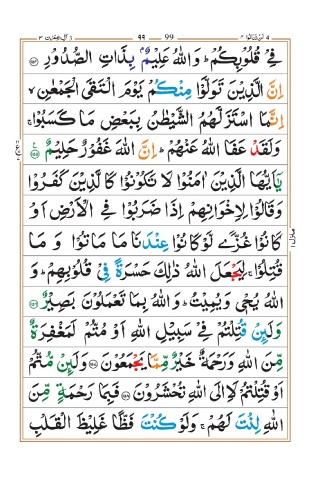 ٩٩ 99
فِيْ قُلُوْبِكُمْ ؕ وَاللّٰهُ عَلِيْمٌۢ بِذَاتِ الصُّدُوْرِ ﴿۱۵۴﴾
اِنَّ الَّذِيْنَ تَوَلَّوْا مِنْكُمْ يَوْمَ الْتَقَى الْجَمْعٰنِ ۙ
اِنَّمَا اسْتَزَلَّهُمُ الشَّيْطٰنُ بِبَعْضِ مَا كَسَبُوْا ۚ
وَلَقَدْ عَفَا اللّٰهُ عَنْهُمْ ؕ اِنَّ اللّٰهَ غَفُوْرٌ حَلِيْمٌ ﴿۱۵۵﴾
يٰۤاَيُّهَا الَّذِيْنَ اٰمَنُوْا لَا تَكُوْنُوْا كَالَّذِيْنَ كَفَرُوْا
وَقَالُوْا لِاِخْوَانِهِمْ اِذَا ضَرَبُوْا فِي الْاَرْضِ اَوْ
كَانُوْا غُزًّى لَّوْ كَانُوْا عِنْدَنَا مَا مَاتُوْا وَ مَا
قُتِلُوْا ۚ لِيَجْعَلَ اللّٰهُ ذٰلِكَ حَسْرَةً فِيْ قُلُوْبِهِمْ ؕ وَ
اللّٰهُ يُحْيٖ وَيُمِيْتُ ؕ وَاللّٰهُ بِمَا تَعْمَلُوْنَ بَصِيْرٌ ﴿۱۵۶﴾
وَلَىِٕنْ قُتِلْتُمْ فِيْ سَبِيْلِ اللّٰهِ اَوْ مُتُّمْ لَمَغْفِرَةٌ
مِّنَ اللّٰهِ وَرَحْمَةٌ خَيْرٌ مِّمَّا يَجْمَعُوْنَ ﴿۱۵۷﴾ وَلَىِٕنْ مُّتُّمْ
اَوْ قُتِلْتُمْ لَاِالَى اللّٰهِ تُحْشَرُوْنَ ﴿۱۵۸﴾ فَبِمَا رَحْمَةٍ مِّنَ
اللّٰهِ لِنْتَ لَهُمْ ۚ وَلَوْ كُنْتَ فَظًّا غَلِيْظَ الْقَلْبِ